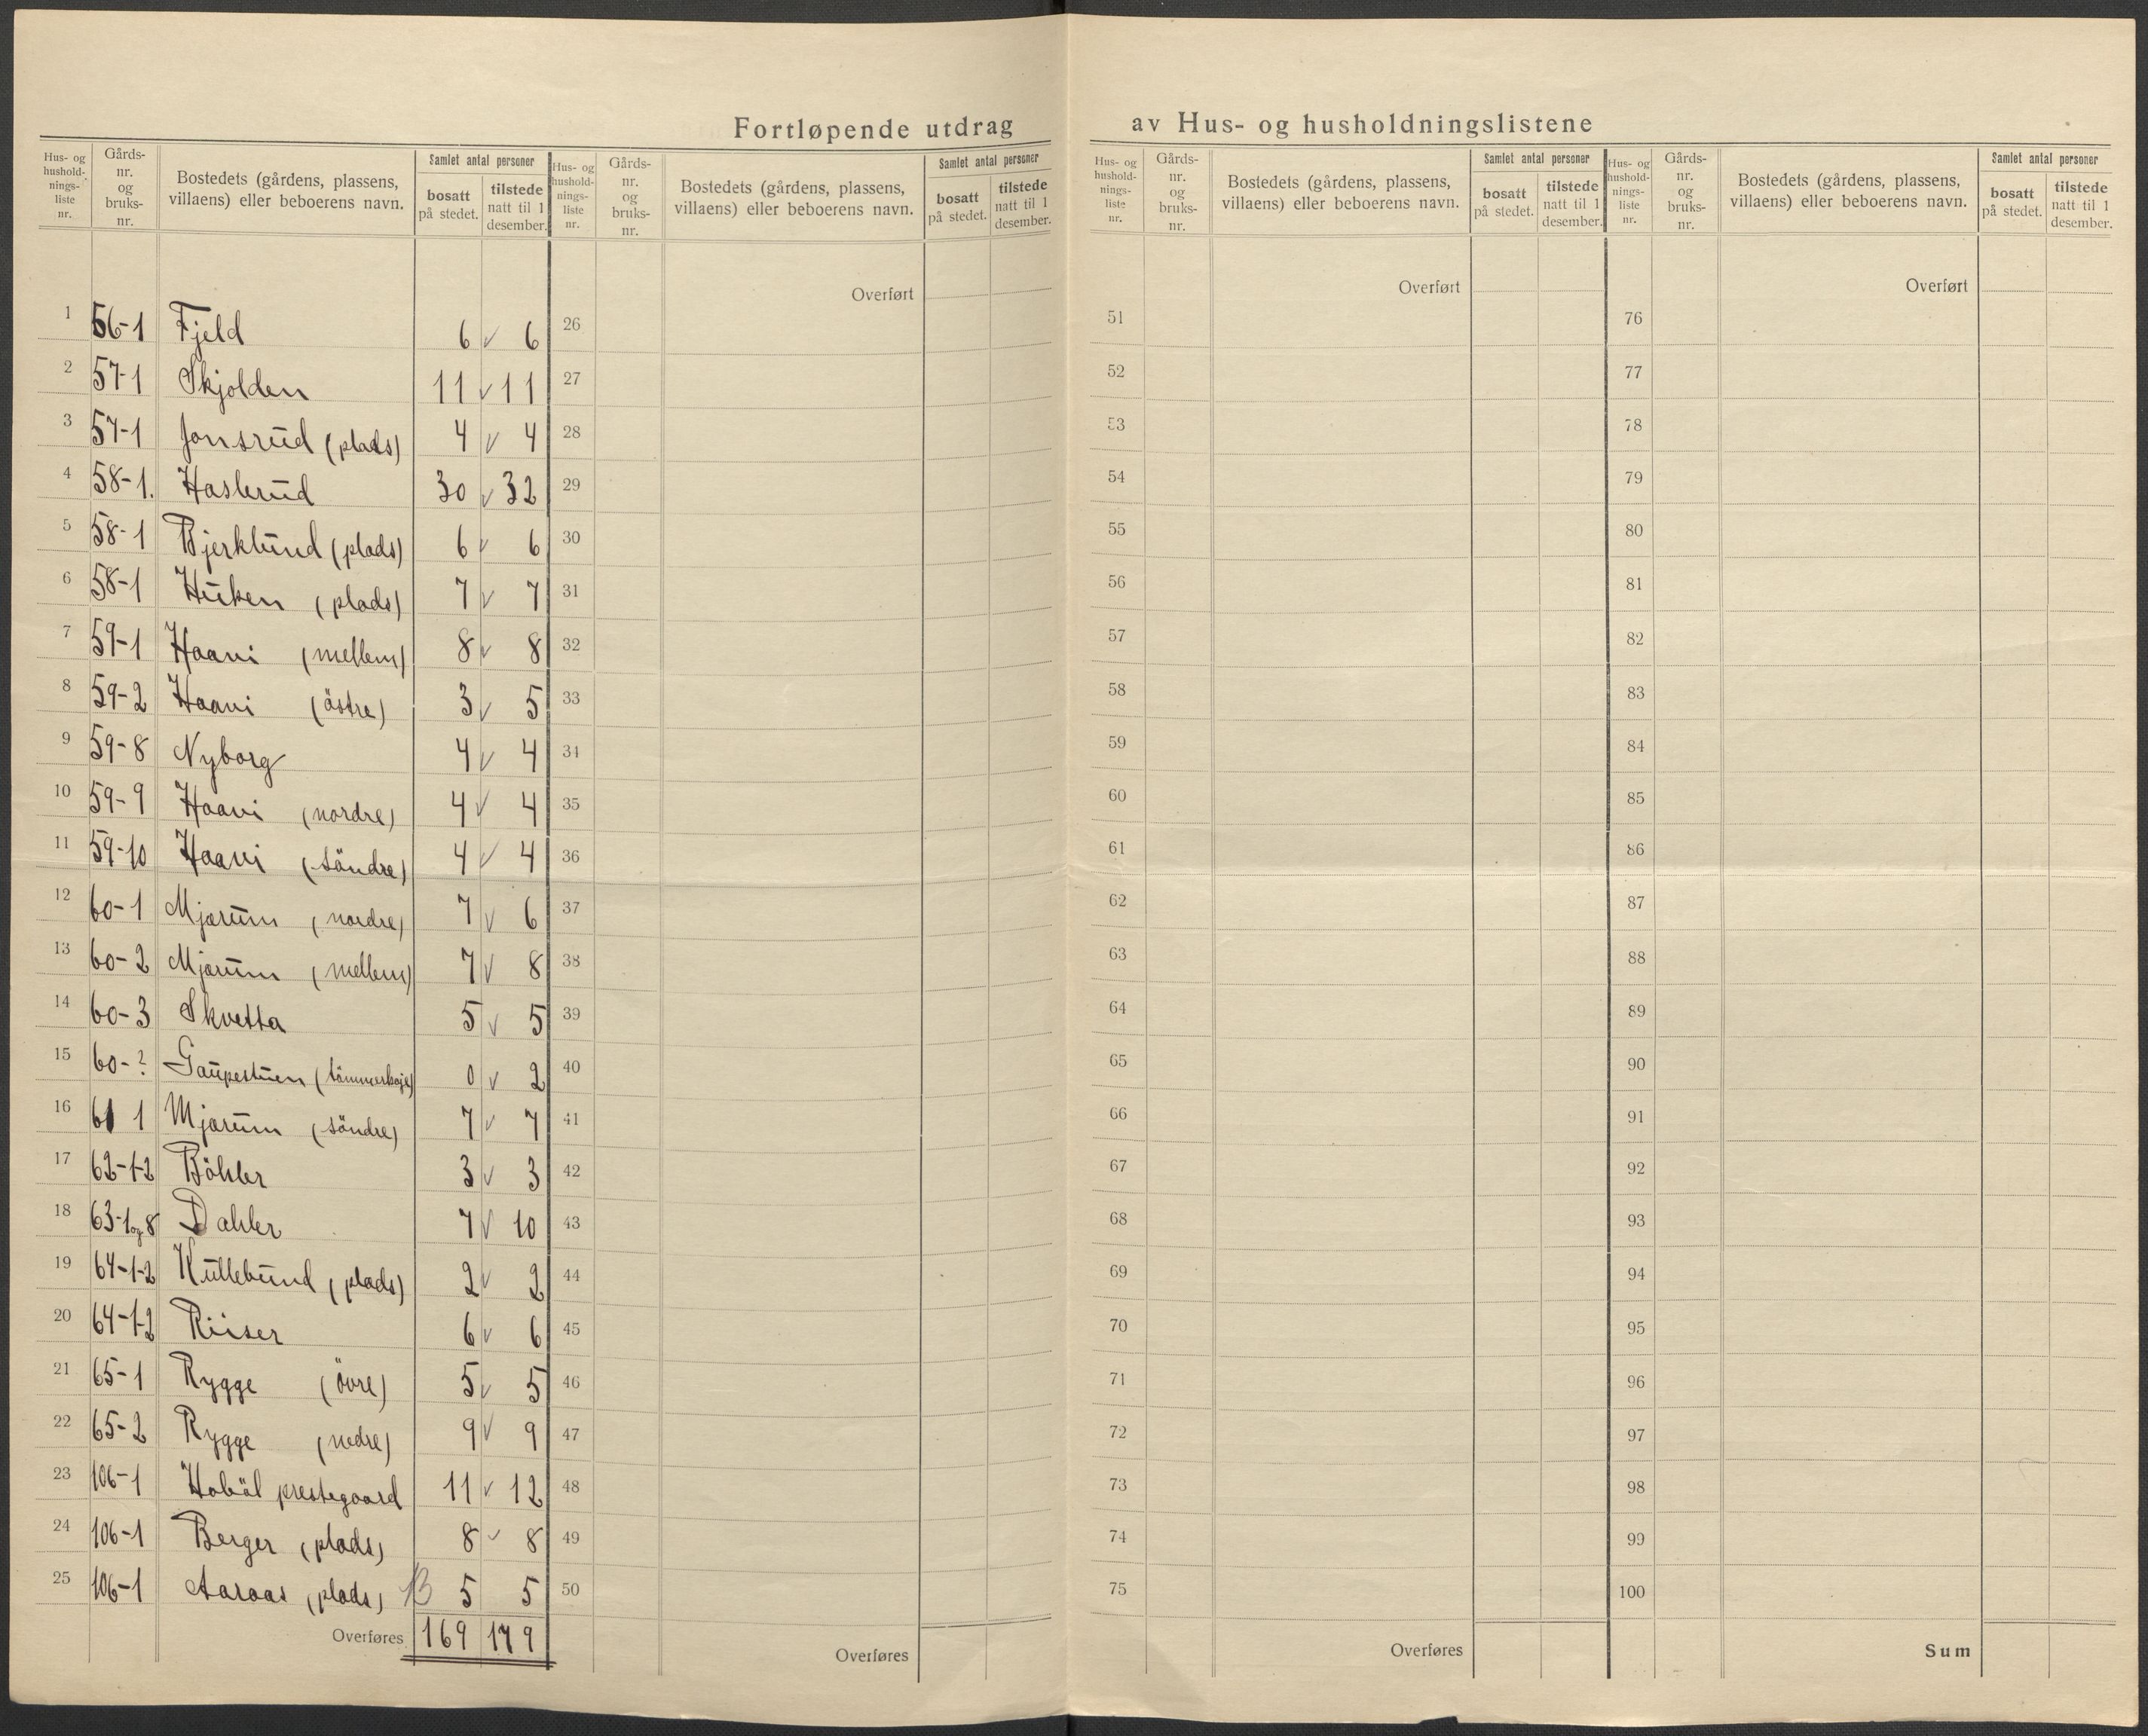 Fortløpende utdrag av Hus- og husholdningslistene
Hus- og hushold-nings-liste nr. Gårds-nr. og bruks-nr. Bostedets (gårdens, plassens, villaens) eller beboerens navn. Samlet antal personer bosatt på stedet. tilstede natt til 1 desember.
1 56-1 Fjeld 6 v 6
2 57-1 Skjolden 11 v 11
3 57-1 Jonsrud (plads) 4 v 4
4 58-1. Haslerud 30 v 32
5 58-1 Bjerklund (plads) 6 v 6
6 58-1 Huken (plads) 7 v 7
7 59-1 Haavi (mellem) 8 v 8
8 59-2 Haavi (östre) 3 v 5
9 59-8 Nyborg 4 v 4
10 59-9 Haavi (nordre) 4 v 4
11 59-10 Haavi (söndre) 4 v 4
12 60-1 Mjærum (nordre) 7 v 6
13 60-2 Mjærum (mellem) 7 v 8
14 60-3 Skvetta 5 v 5
15 60-? Gaupestuen (tömmerkoje) 0 v 2
16 61 1 Mjærum (söndre) 7 v 7
17 62-1-2 Böhler 3 v 3
18 63-1og8 Dahler 7 v 10
19 64-1-2 Kullebund (plads) 2 v 2
20 64-1-2 Riiser 6 v 6
21 65-1 Rygge (övre) 5 v 5
22 65-2 Rygge (nedre) 9 v 9
23 106-1 Hoböl prestegaard 11 v 12
24 106-1 Berger (plads) 8 v 8
25 106-1 Aaraas (plads) B 5 5
Overføres 169 179
Hus- og hushold-nings-liste nr. Gårds-nr. og bruks-nr. Bostedets (gårdens, plassens, villaens) eller beboerens navn. Samlet antal personer bosatt på stedet. tilstede natt til 1 desember.
Overført
26
27
28
29
30
31
32
33
34
35
36
37
38
39
40
41
42
43
44
45
46
47
48
49
50
Overføres
Hus- og hushold-nings-liste nr. Gårds-nr. og bruks-nr. Bostedets (gårdens, plassens, villaens) eller beboerens navn. Samlet antal personer bosatt på stedet. tilstede natt til 1 desember.
Overført
51
52
53
54
55
56
57
58
59
60
61
62
63
64
65
66
67
68
69
70
71
72
73
74
75
Overføres
Hus- og hushold-nings-liste nr. Gårds-nr. og bruks-nr. Bostedets (gårdens, plassens, villaens) eller beboerens navn. Samlet antal personer bosatt på stedet. tilstede natt til 1 desember.
Overført
76
77
78
79
80
81
82
83
84
85
86
87
88
89
90
91
92
93
94
95
96
97
98
99
100
Sum